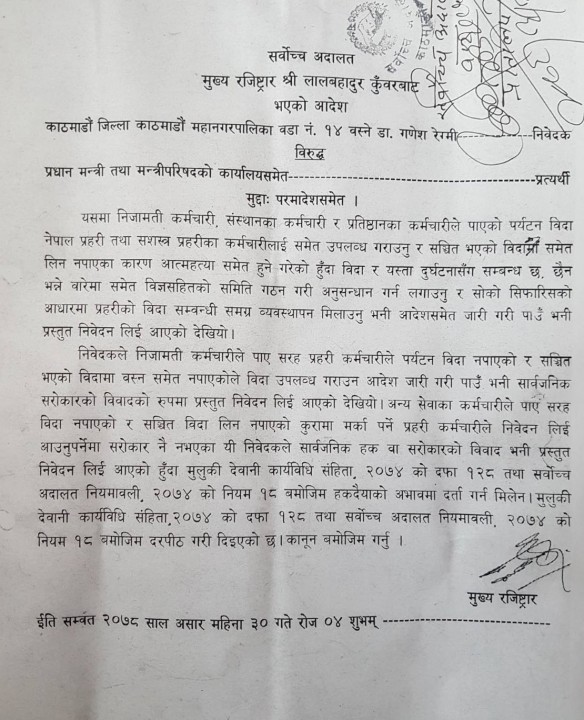 सर्वोच्च अदालत
मुख्य रजिष्ट्रार श्री लालबहादुर कुँवरबाट
भएको आदेश
काठमाडौं जिल्ला काठमाडौं महानगरपालिका वडा नं. १४ वस्ने डा. गणेश रेग्मी---------------निवेदक
विरुद्ध
प्रधान मन्त्री तथा मन्त्रीपरिषदको कार्यालयसमेत---------------------------------------प्रत्यर्थी
मुद्दाः परमादेशसमेत ।
यसमा निजामती कर्मचारी, संस्थानका कर्मचारी र प्रतिष्ठानका कर्मचारीले पाएको पर्यटन विदा
नेपाल प्रहरी तथा सशस्त्र प्रहरीका कर्मचारीलाई समेत उपलब्ध गराउनु र सञ्चित भएको विदा समेत
लिन नपाएका कारण आत्महत्या समेत हुने गरेको हुँदा विदा र यस्ता दुर्घटनासँग सम्बन्ध छ, छैन
भन्ने वारेमा समेत विज्ञसहितको समिति गठन गरी अनुसन्धान गर्न लगाउनु र सोको सिफारिसको
आधारमा प्रहरीको विदा सम्बन्धी समग्र व्यवस्थापन मिलाउनु भनी आदेशसमेत जारी गरी पाउँ भनी
प्रस्तुत निवेदन लिई आएको देखियो।
निवेदकले निजामती कर्मचारीले पाए सरह प्रहरी कर्मचारीले पर्यटन विदा नपाएको र सञ्चित
भएको विदामा वस्न समेत नपाएकोले विदा उपलब्ध गराउन आदेश जारी गरी पाउँ भनी सार्वजनिक
सरोकारको विवादको रुपमा प्रस्तुत निवेदन लिई आएको देखियो। अन्य सेवाका कर्मचारीले पाए सरह
विदा नपाएको र सञ्चित विदा लिन नपाएको कुरामा मर्का पर्ने प्रहरी कर्मचारीले निवेदन लिई
आउनुपर्नेमा सरोकार नै नभएका यी निवेदकले सार्वजनिक हक वा सरोकारको विवाद भनी प्रस्तुत
निवेदन लिई आएको हुँदा मुलुकी देवानी कार्यविधि संहिता, २०७४ को दफा १२८ तथा सर्वोच्च
अदालत नियमावली, २०७४ को नियम १८ बमोजिम हकदैयाको अभावमा दर्ता गर्न मिलेन। मुलुकी
देवानी कार्यविधि संहिता,२०७४ को दफा १२८ तथा सर्वोच्च अदालत नियमावली, २०७४ को
नियम १८ बमोजिम दरपीठ गरी दिइएको छ। कानून बमोजिम गर्नु ।
मुख्य रजिष्ट्रार
ईति सम्वत २०७८ साल असार महिना ३० गते रोज ०४ शुभम् ---------------------------